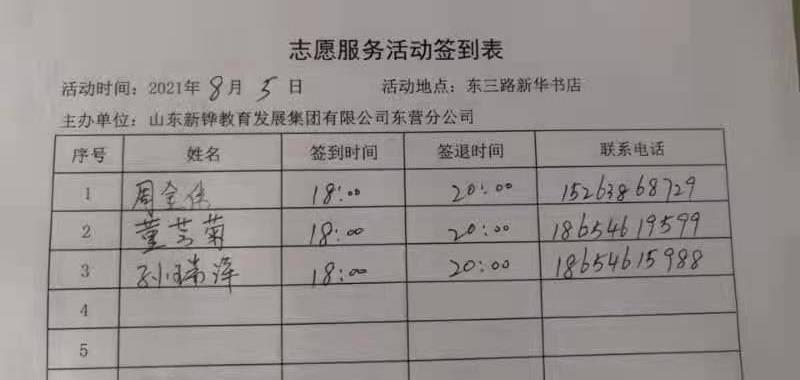 志愿服务活动签到表
活动时间：2021年 8 月 5 日 活动地点：东三路新华书店
主办单位：山东新铧教育发展集团有限公司东营分公司
序号 姓名 签到时间 签退时间 联系电话
1 周全 18:00 20:00 15263868729
2 董芸菊 18:00 20:00 18654619599
3 孙瑞泽 18:00 20:00 18654615988
4
5